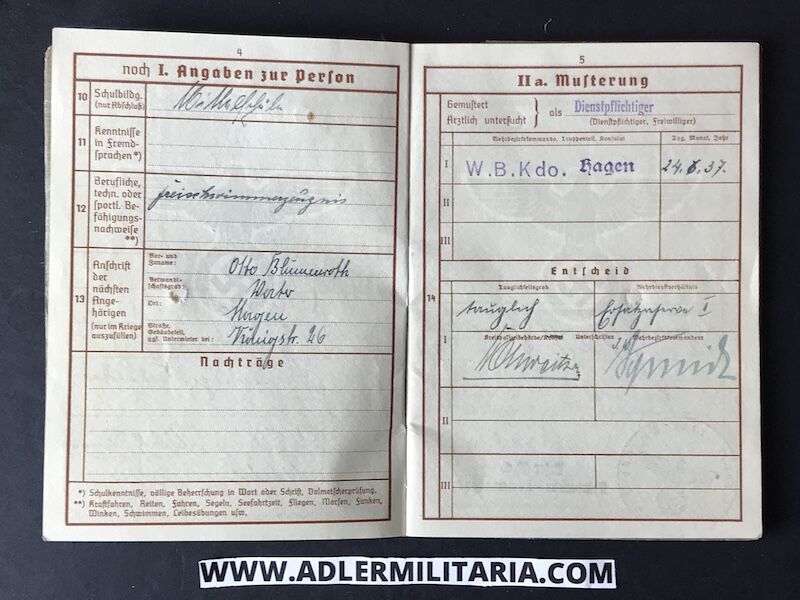 4
noch I. Angaben zur Person
10 Schulbildg. (nur Abschluß)
Mittelschule
11 Kenntnisse in Fremd-
sprachen*)
12 Berufliche,
techn. oder
sportl. Be-
fähigungs-
nachweise
**)
Freischwimmerzeugnis
13 Anschrift
der
nächsten
Ange-
hörigen
(nur im Kriege
auszufüllen)
Vor- und
Zuname:
Otto Blumenroth
Verwandt-
schaftsgrad:
Vater
Ort:
Hagen
Straße,
Gebäudeteil,
ggf. Untermieter bei:
Königstr. 26
Nachträge
*) Schulkenntnisse, völlige Beherrschung in Wort oder Schrift, Dolmetscherprüfung.
**) Kraftfahren, Reiten, Fahren, Segeln, Seefahrtzeit, Fliegen, Morsen, Funken,
Winken, Schwimmen, Leibesübungen usw.
5
II a. Musterung
Gemustert
Ärztlich untersucht } als Dienstpflichtiger
(Dienstpflichtiger, Freiwilliger)
Wehrbezirkskommando, Truppenteil, Konsulat
Tag, Monat, Jahr
I W.B.Kdo. Hagen 24. 6. 37.
II
III
Entscheid
14
Tauglichkeitsgrad Wehrdienstverhältnis
tauglich Ersatzreserve I
I
Kreispolizeibehörde Unterschriften Wehrbezirkskommandeur
Schmidt
II
III
WWW.ADLERMILITARIA.COM